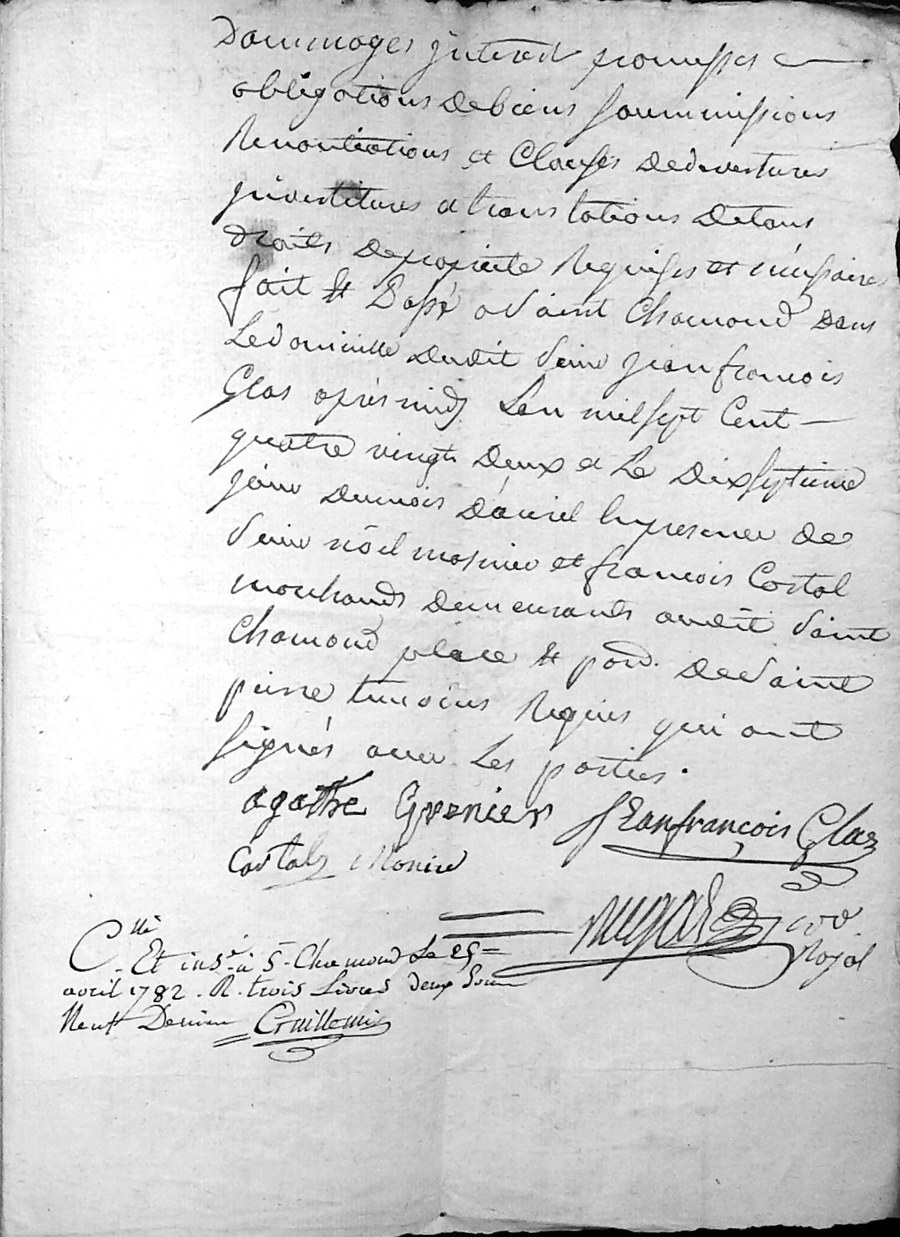 Dommages jnterest promesses &
obligations de biens soummissions
Renontiations et Clauses de devestures
jnvestitures & translations de tous
droits de propriete Requises et nécessaires
fait et Passé a Saint Chamond dans
Le domicille dudit Sieur jean françois
Glas après midy Lan mil sept Cent
quatre vingt deux & Le dix septieme
jour du mois davril En presence de
Sieur nöel mosnier et françois Costal
marchands demeurants audit Saint
Chamond place et par. de Saint
pierre temoins Requis qui ont
signés avec Les parties.
agathe Grenier jEanfrançois Glas
Costal Monier
Royal
C.lé
Et insé. à St Chamond Le 25
avril 1782. R. trois Livres deux Sous
Neuf Deniers